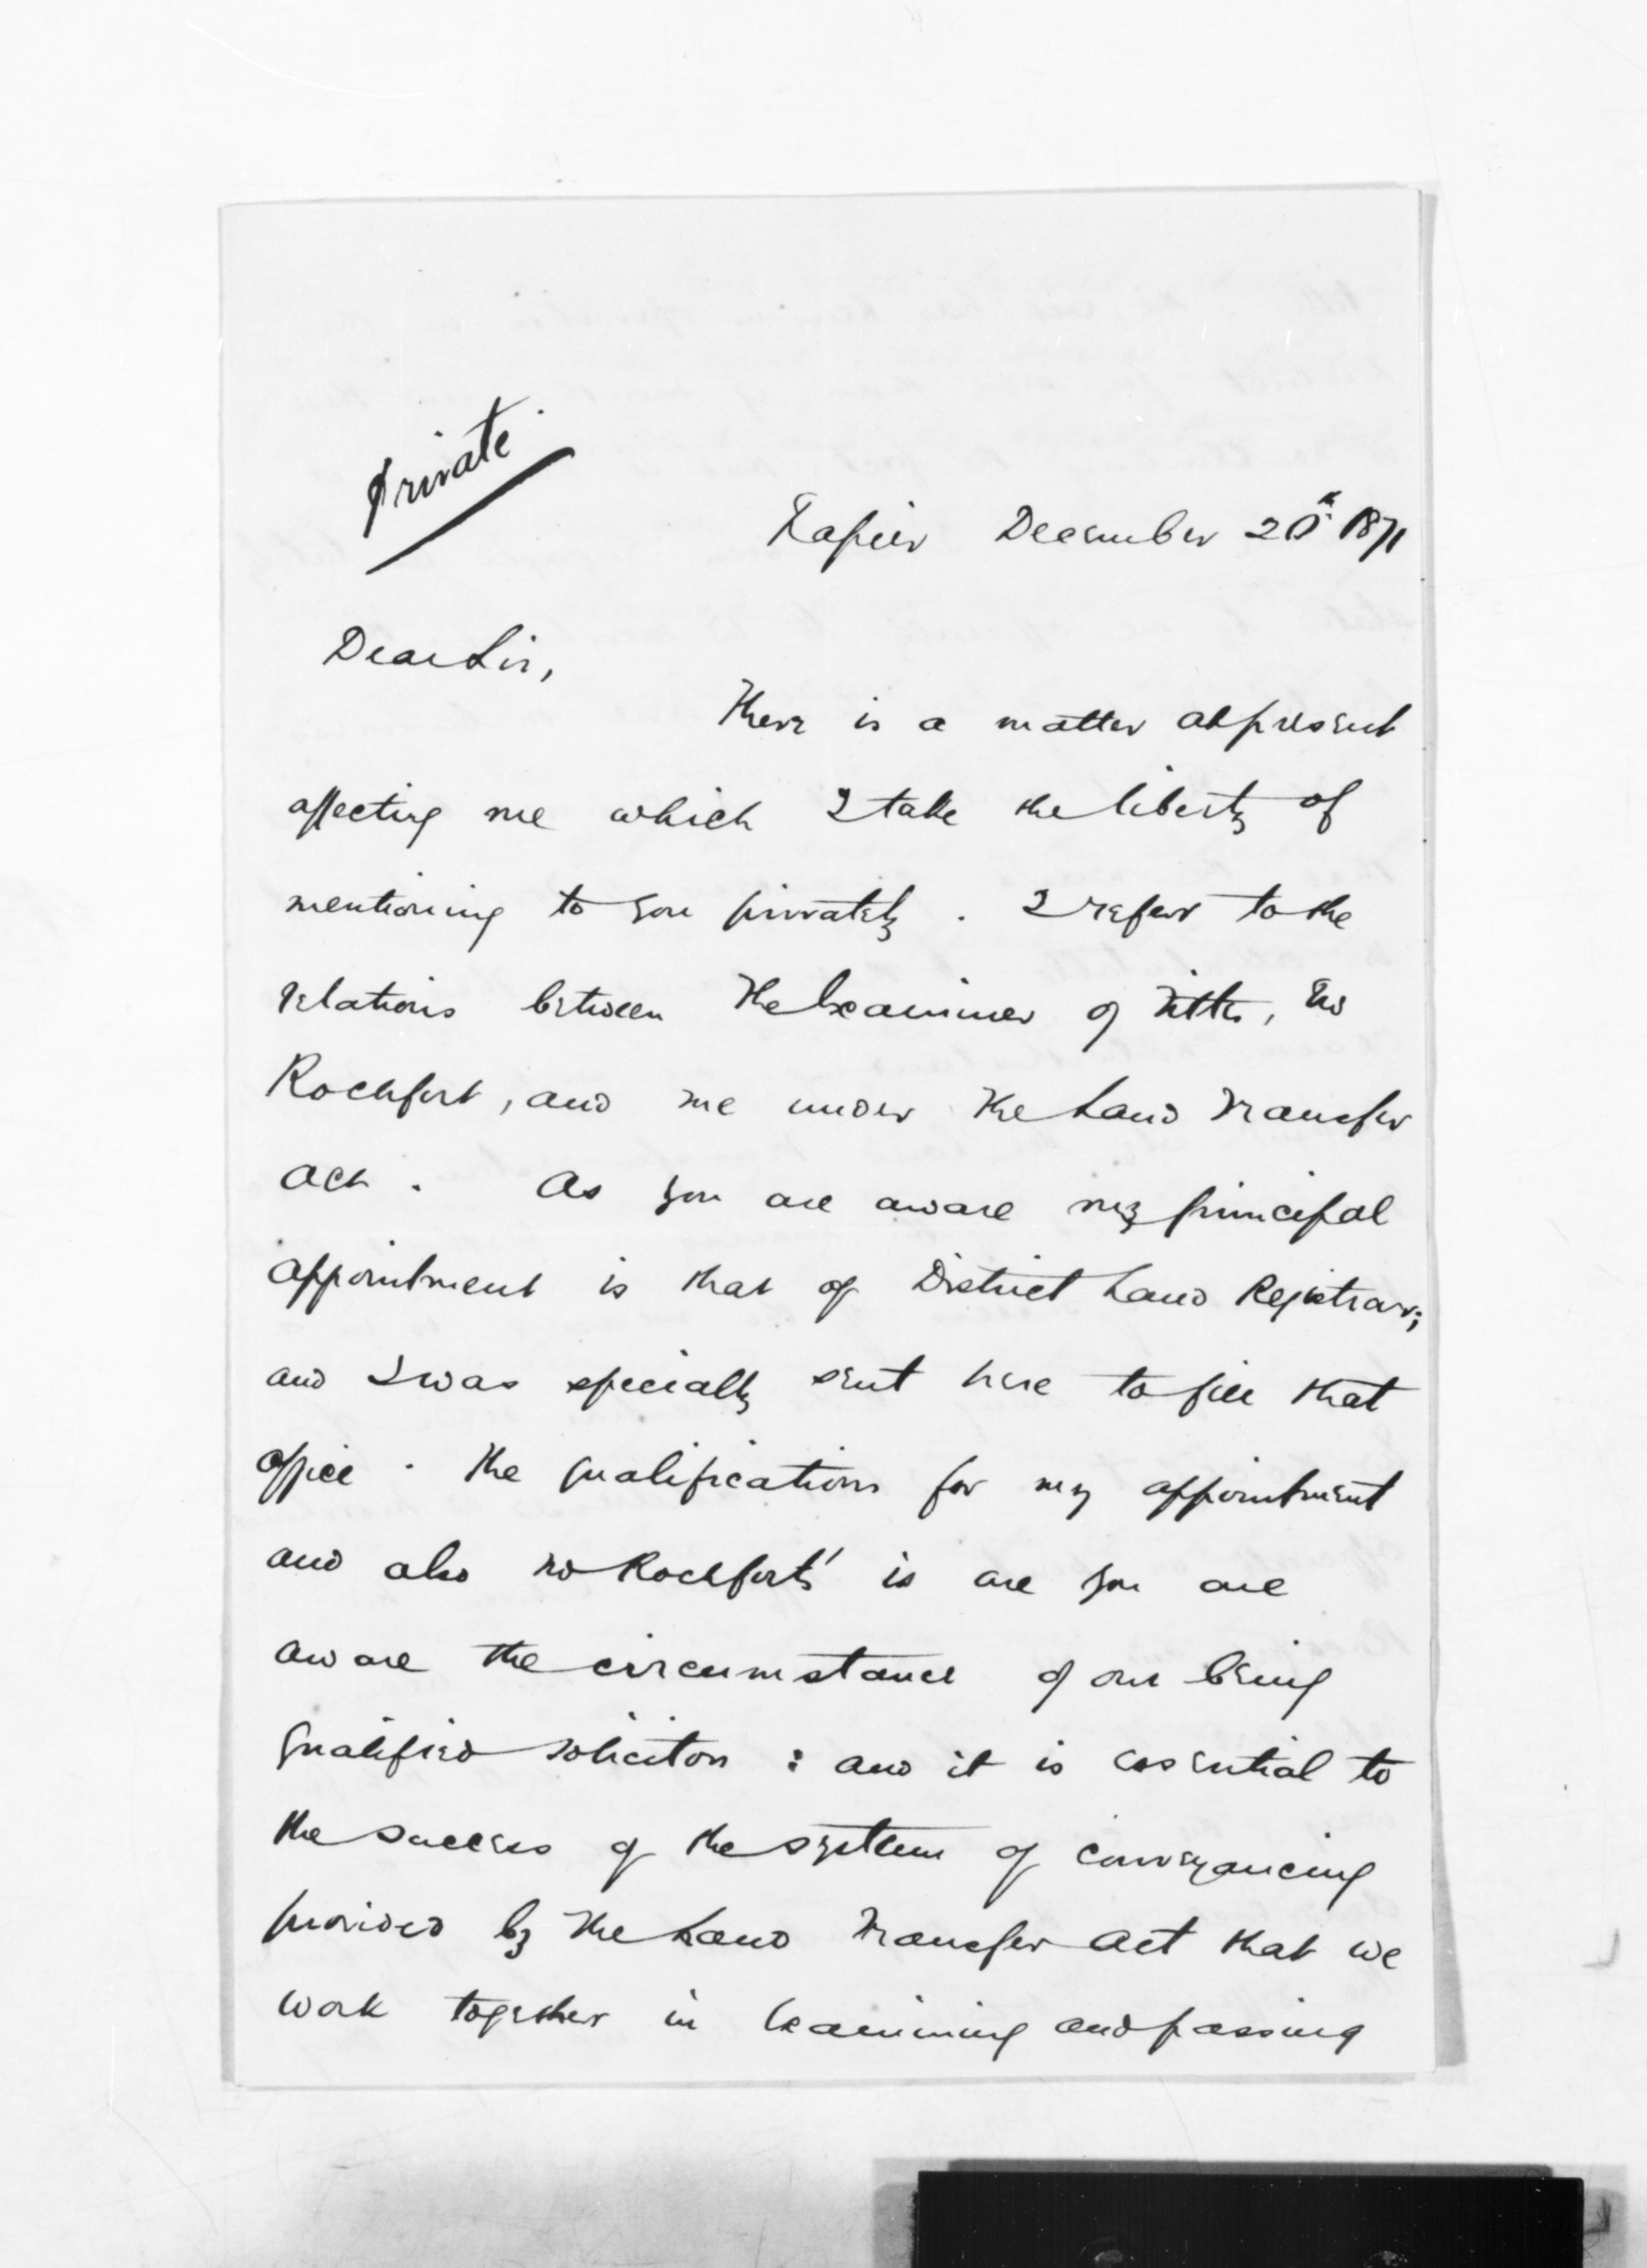 Private
Napier December 20th 1871
Dear Sir,
There is a matter at present
affecting me which I take the liberty of
mentioning to you privately. I refer to the
relations between the Examiner of Titles, Mr
Rochfort, and me under the Land Transfer
Act. As you are aware my principal
appointment is that of District Land Registrar;
and I was specially sent here to fill that
office. The qualifications for my appointment
and also Mr Rochfort's is are you are
aware the circumstance of our being
qualified solicitors: and it is essential to
the success of the system of conveyancing
provided by the Land Transfer Act that we
work together in examining and passing